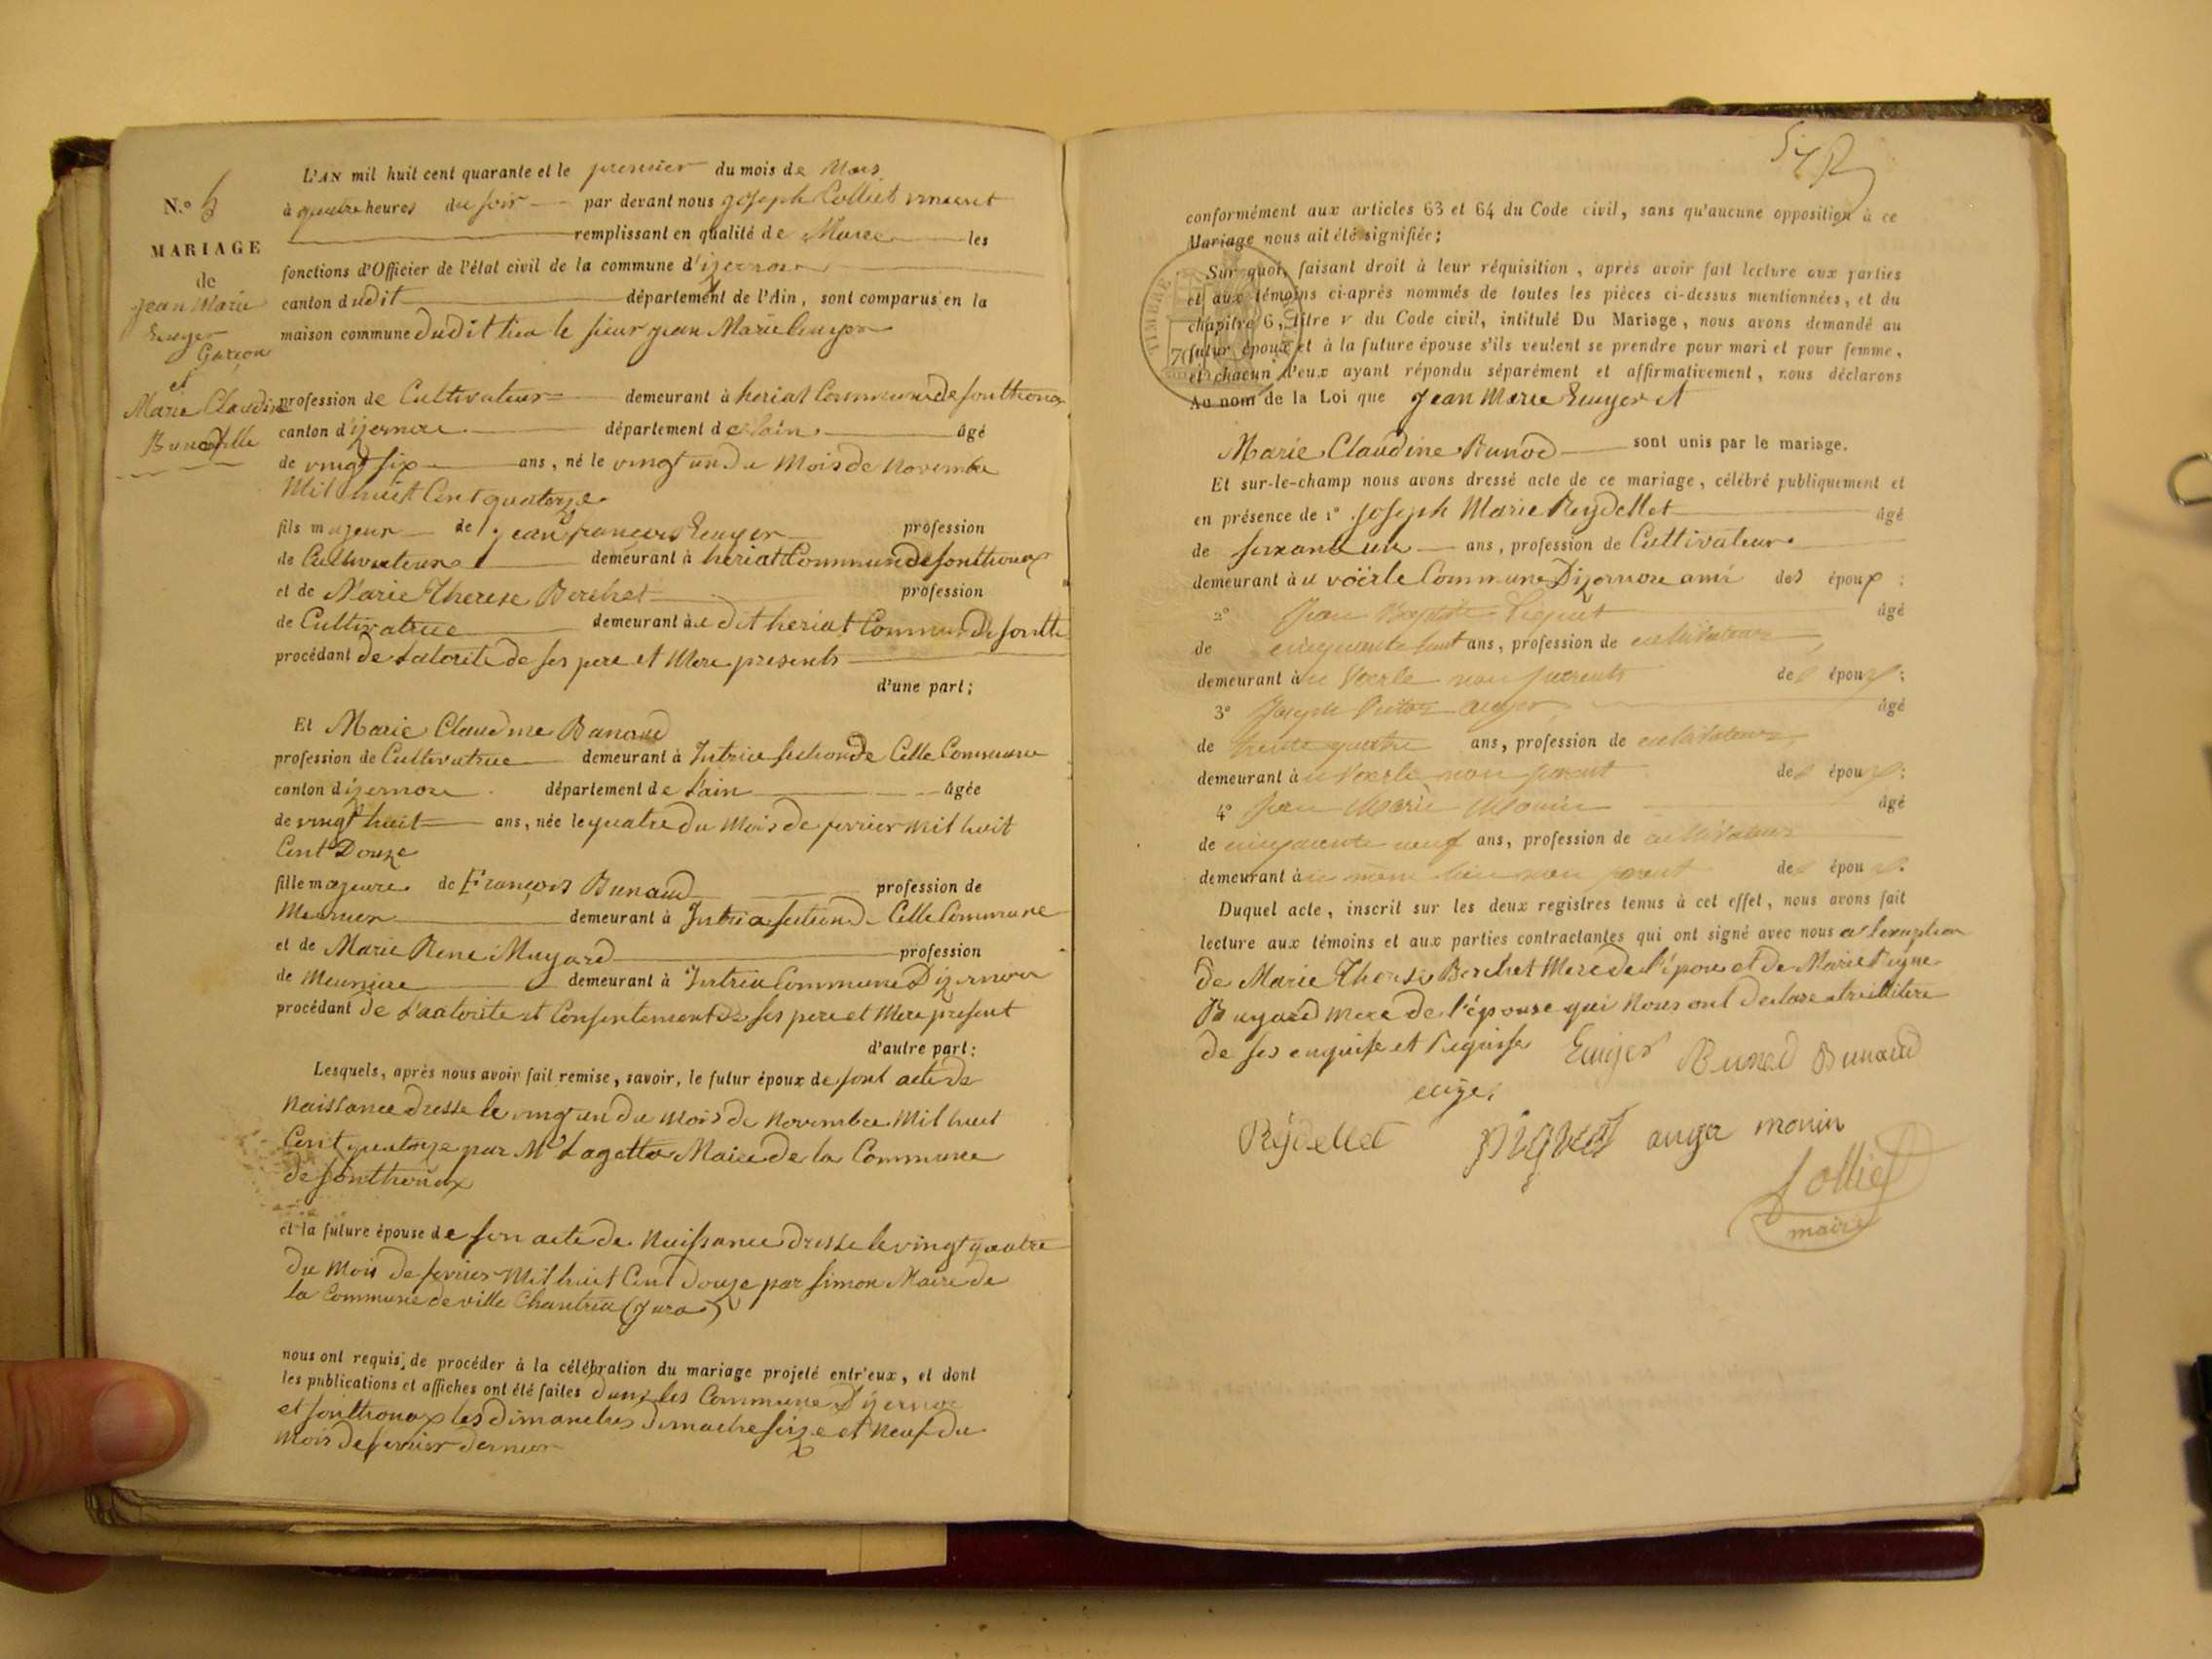 L'AN mil huit cent quarante et le premier du mois de Mars
N.° 5
à quatre heures du soir par devant nous joseph Colliet vincent
remplissant en qualité de Maire les
MARIAGE
fonctions d'Officier de l'état civil de la commune d'izernore
de
canton dudit département de l'Ain, sont comparus en la
jean Marie
maison commune dudit lieu le sieur jean Marie Emyer
Garçon
et
Marie Claudine
Bunod fille
profession de Cultivateur demeurant à heriat Commune de sonthonax
canton d'izernore département de Lain âgé
de vingt six ans, né le vingt un du Mois de Novembre
Mil huit Cent quatorze
fils majeur de jean françois profession
de Cultivateur demeurant à heriat Commun de sonthonax
et de Marie Therese Berchet profession
de Cultivatrice demeurant à udit heriat Commun de sontho
procédant de Latorité de ses pere et Mere presents
d'une part;
Et Marie Claudine Bunoud
profession de Cultivatrice demeurant à Intriat section de Cette Commune
canton d'izernore département de Lain âgée
de vingt huit ans, née le quatre du Mois de fevrier Mil huit
Cent Douze
fille majeure de François Bunaud profession de
Meunier demeurant à Intria section de Cette Commune
et de Marie Rene Muyard profession
de Meuniere demeurant à Intria Commune Dizernore
procédant de L'autorité et Consentement de ses pere et Mere present
d'autre part:
Lesquels, après nous avoir fait remise, savoir, le futur époux de sont acte de
Naissance dressé le vingt un du Mois de Novembre Mil huit
Cent quatorze par Mr Lagatte Maire de la Commune
de sonthonax
et la future épouse de son acte de Naissance dressé le vingt quatre
du Mois de fevrier Mil huit Cent douze par simon Maire de
la Commune de ville Chantria (jura)
nous ont requis, de procéder à la célébration du mariage projeté entr'eux, et dont
les publications et affiches ont été faites dans les Commune Dizernore
et sonthonax les dimanches dimache seize et Neuf du
Mois de fevrier dernier
conformément aux articles 63 et 64 du Code civil, sans qu'aucune opposition à ce
Mariage nous ait été signifiée;
Sur quoi, faisant droit à leur réquisition, après avoir fait lecture aux parties
et aux témoins ci-après nommés de toutes les pièces ci-dessus mentionnées, et du
chapitre 6, titre V du Code civil, intitulé Du Mariage, nous avons demandé au
futur époux et à la future épouse s'ils veulent se prendre pour mari et pour femme,
et chacun d'eux ayant répondu séparément et affirmativement, nous déclarons
Au nom de la Loi que Jean Marie Emyer et
Marie Claudine Bunod sont unis par le mariage.
Et sur-le-champ nous avons dressé acte de ce mariage, célébré publiquement et
en présence de 1° Joseph Marie Reydellet âgé
de soixante un ans, profession de Cultivateur
demeurant à u voërle Commune Dizernore ami des époux;
2° Jean Baptiste Piquet âgé
de cinquante huit ans, profession de cultivateur
demeurant à u Voerle non parents des époux;
3° Joseph Victor auger âgé
de trente quatre ans, profession de cultivateur
demeurant à u Voerle non parent des époux;
4° Jean Marie Monin âgé
de cinquante neuf ans, profession de cultivateur
demeurant à u même lieu non parent des époux.
Duquel acte, inscrit sur les deux registres tenus à cet effet, nous avons fait
lecture aux témoins et aux parties contractantes qui ont signé avec nous a lexeption
de Marie Therese Berchet Mere de l'époux et de Marie
Muyard mere de l'épouse qui Nous ont declare etre illitere
de ses enquise et requise Emyer Bunod Bunaud
Reydellet piquet auger monin
Colliet
maire